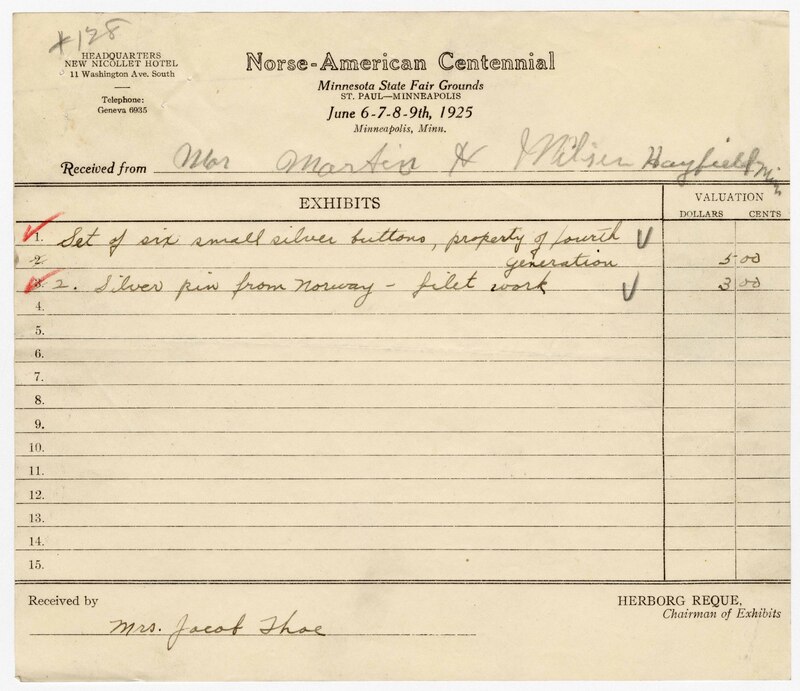 #128
HEADQUARTERS
NEW NICOLLET HOTEL
11 Washington Ave. South
Telephone:
Geneva 6935
Norse-American Centennial
Minnesota State Fair Grounds
ST. PAUL—MINNEAPOLIS
June 6-7-8-9th, 1925
Minneapolis, Minn.
Received from Mr Martin H Nilsen Hayfield Min
EXHIBITS
VALUATION
DOLLARS CENTS
1. Set of six small silver buttons, property of fourth
2. generation 5 00
3. 2. Silver pin from Norway - filet work 3 00
4.
5.
6.
7.
8.
9.
10.
11.
12.
13.
14.
15.
Received by
Mrs. Jacob Thoe
HERBORG REQUE,
Chairman of Exhibits